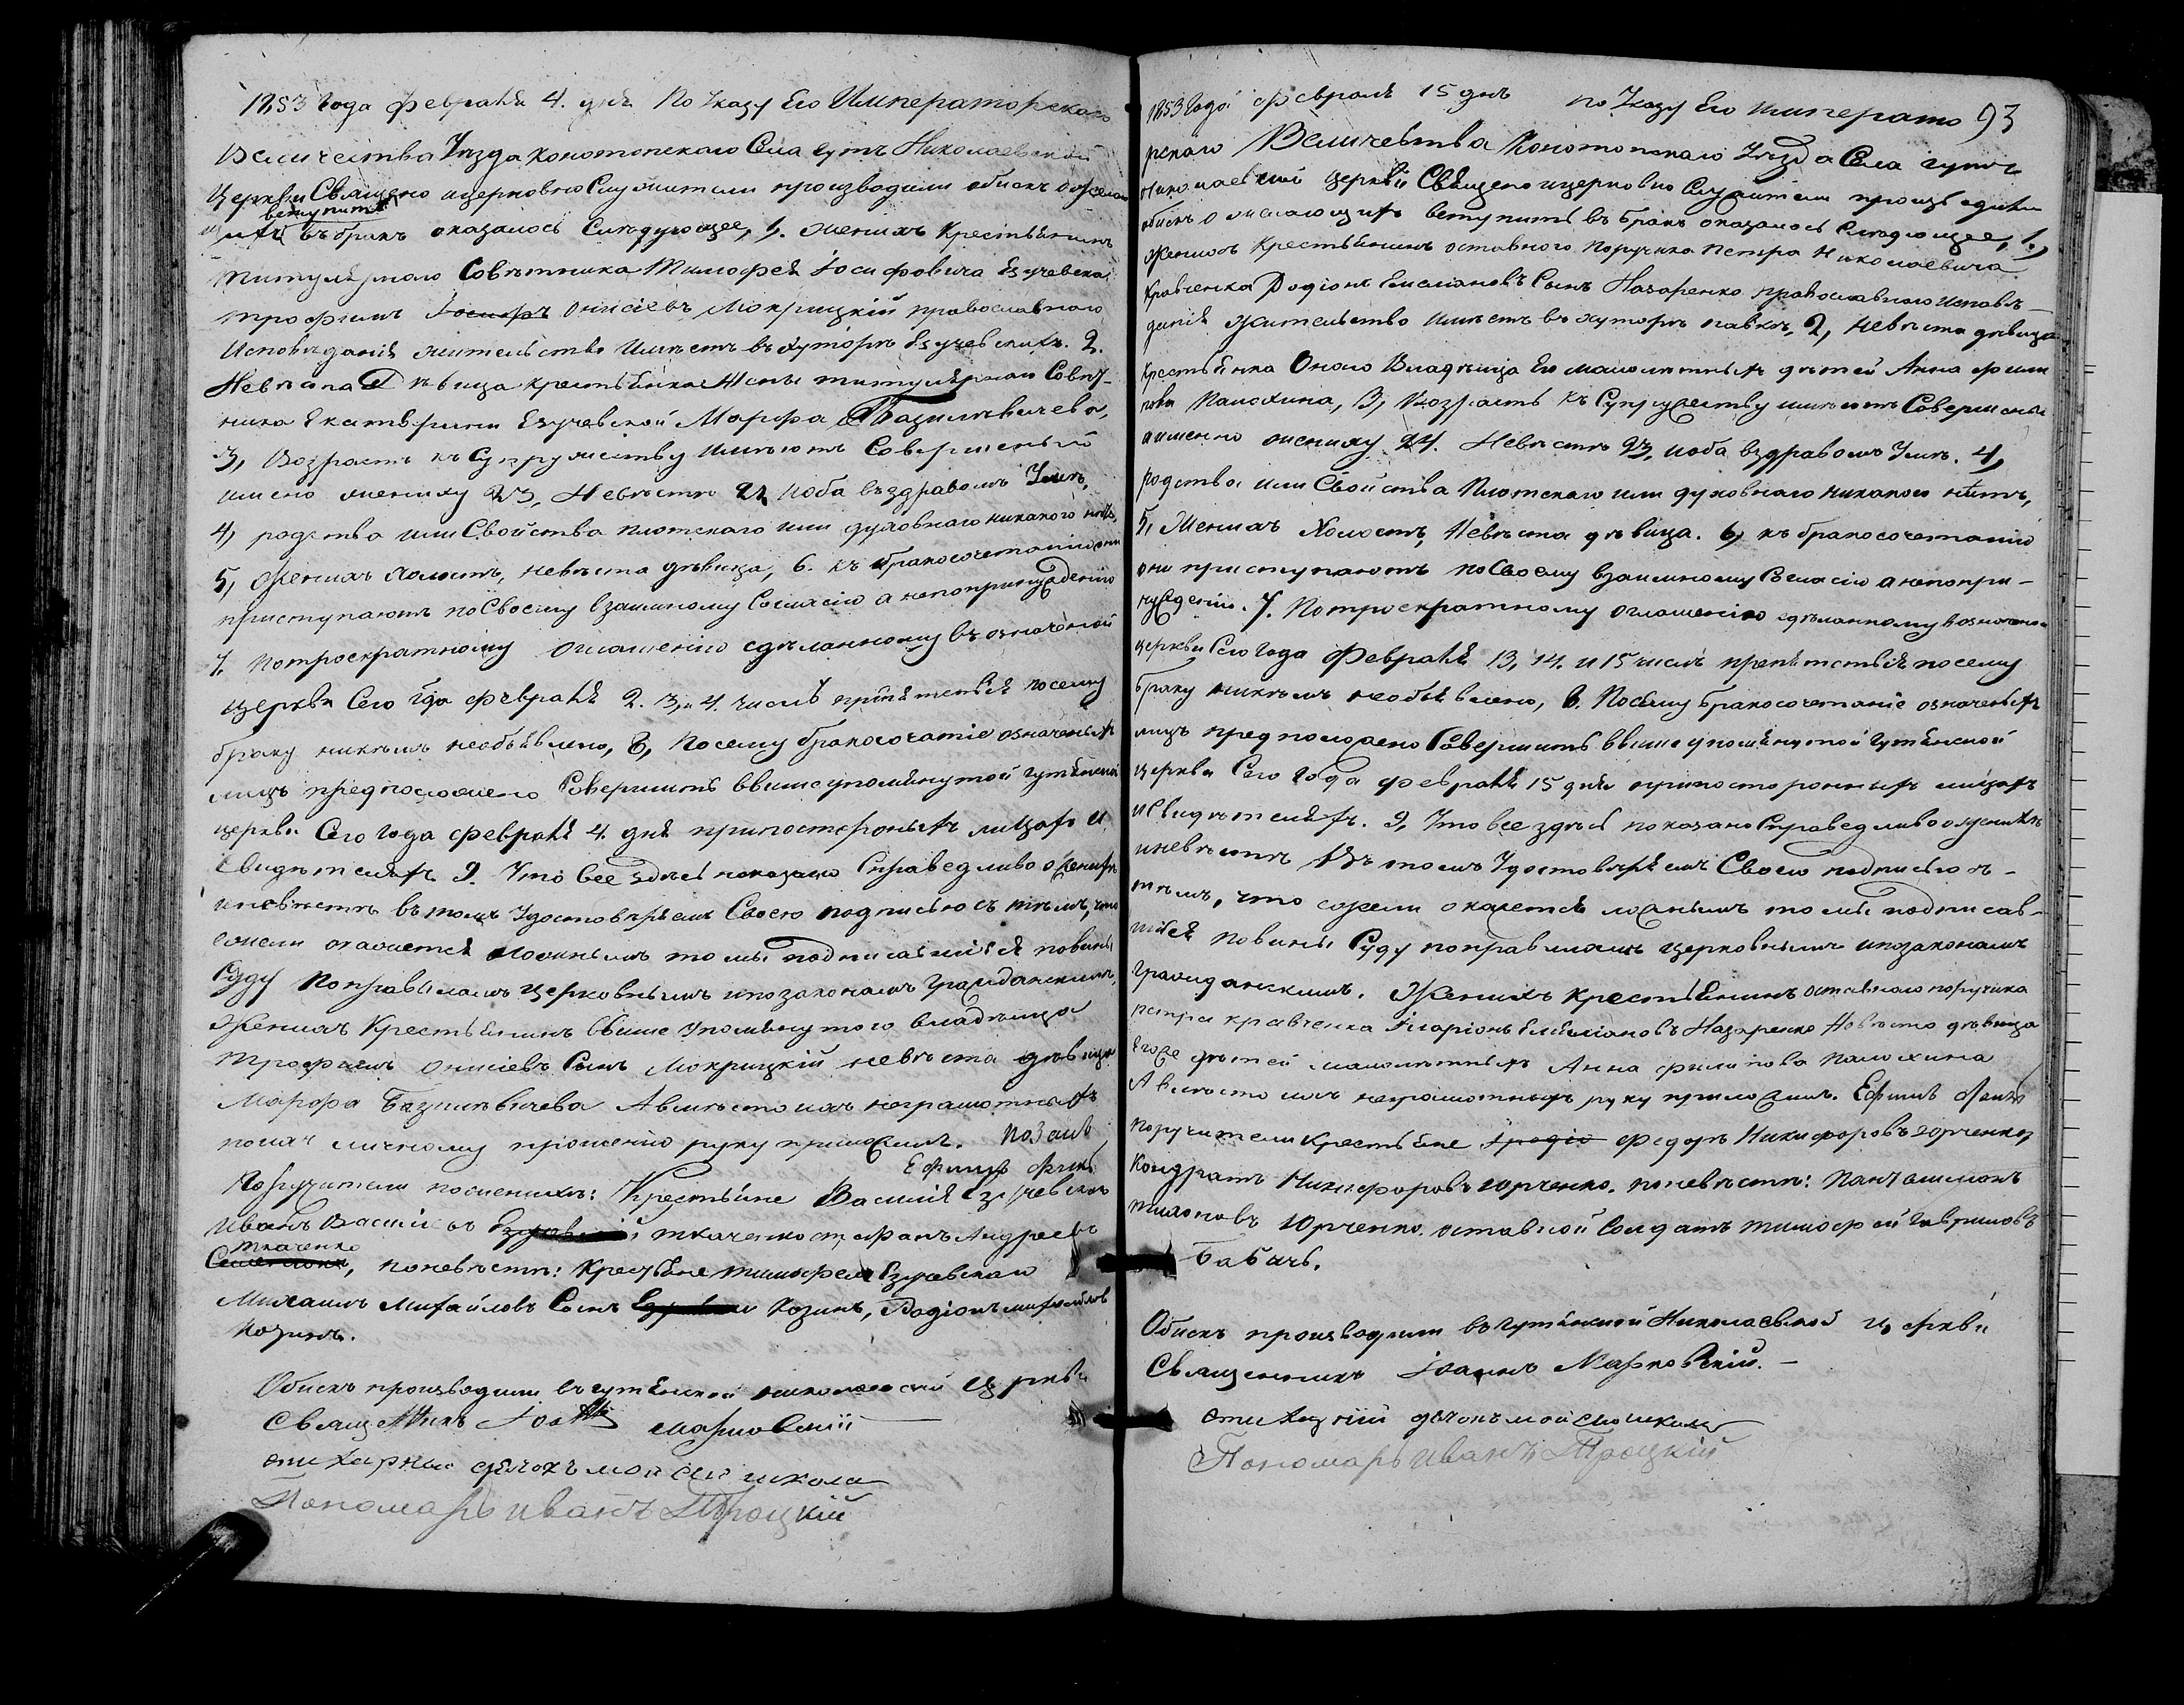 1853 Года Февраля 4. дня По Указу Его Императорскаго
Величества Уезда Конотопскаго Села гутъ Николаевской
Церкви Священо ицерковно Служители производили обискъ о желаю
вступить
щихъ въ бракъ оказалось Следующее, 1. женихъ Крестьянинъ
Титулярнаго Совѣтника Тимофея Іосифовича Езучевска
трофимъ Онисіевъ Мокрицкій православнаго
Исповѣданія жительство Имѣетъ въ хуторѣ Езучевскихъ. 2.
Невѣста Дѣвица крестьянка Жены титулярнаго Совѣт-
ника Екатерини Езучевской Марфа Базилѣвичева,
3, Возрастъ къ Супружеству Имѣютъ Совершеный
имено жениху 23, Невѣсте 21 иоба въздравомъ Умѣ,
4, родства или Свойства плотскаго или духовнаго никакого нѣтъ,
5, Женихъ Холостъ, невѣста дѣвица, 6. къ бракосочетанію они
приступаютъ посвоему взаимному Согласію а непопринуждению
7, Потроекратному оглашенію сдѣланному въ означеной
церкви Сего Года февраля 2. 3, и 4. числъ препятствія посему
браку никѣмъ необъявлено, 8, Посему бракосочетаніе означеныхъ
лицъ предположено Совершить ввышеупомянутой гутянской
церкви Сего Года февраля 4. дня припостороныхъ лицахъ и
Свидѣтеляхъ 9. Что все здѣсь показано Справедливо о женихѣ
иневѣстѣ въ томъ Удостовѣряемъ Своею подписью съ тѣмъ, что
ежели окажется ложнымъ то мы подписавшіися повины
Суду Поправиламъ церковнымъ ипозаконамъ Гражданскимъ,
Женихъ Крестьянинъ ввыше упомянутого владѣлца
трофимъ Онисіевъ Сынъ Мокрицкій невѣста дѣвица
Марфа Базилѣвичева Авмѣсто ихъ неграмотныхъ
поихъ личному прошенію руку приложилъ.
Ефимъ
Поручители поженихѣ: Крестьяне Василія Езучевскаго
Иванъ Василіевъ ткаченко стефанъ Андреевъ
ткаченко
, поневѣсте: Крестьяне тимофея Езучевскаго
Михаилъ Михайловъ Сынъ Козинъ, Родіонъ михайловъ
Козинъ.
Обискъ производили въгутянской николаевской церкви
Священникъ Іоаннъ Марковскій
стихарный дячокъ мойсей школа
Пономарь Иванъ Троцкій
93
1853 Года февраля 15 дня по Указу Его императо
рскаго Величества Конотопскаго Уезда Села гутъ
Николаевской церкви Священо ицерковно Служители производили
обискъ о желающихъ вступить въ бракъ оказалось Следующее, 1,
женихъ Крестьянинъ оставного поручика Петра Николаевича
Кравченка Родіонъ Емеліановъ Сынъ Назаренко православнаго исповѣ-
данія Жительство имѣетъ въ хуторѣ 2, Невѣста дѣвица
Крестьянка Оного Владѣлца Его малолѣтныхъ дѣтей Анна фили
пова Палохина, 3, Возрастъ къ Супружеству имѣютъ Совершены
аименно жениху 24. Невѣсте 23, иоба вздравомъ Умѣ. 4,
родства или Свойства Плотскаго или духовнаго никакого нѣтъ,
5, Женихъ Холостъ, Невѣста дѣвица. 6, къ бракосочетанію
они приступаютъ посвоему взаимному Согласію а непопри-
нуждению. 7. Потроекратному оглашенію сдѣланному возначеной
церкви Сего Года февраля 13, 14. и 15 числъ препятствія посему
браку никѣмъ необъявлено, 8. Посему бракосочетаніе означеныхъ
лицъ предположено Совершить ввышеупомянутой гутянской
церкви Сего Года февраля 15 дня припостороннихъ лицахъ
иСвидѣтеляхъ. 9, Что все здѣсь показано Справедливо оженихѣ
иневѣсте Въ томъ Удостовѣряемъ Своею подписью съ-
тѣмъ, что ежели окажется ложнымъ то мы подписав-
шіися повины Суду поправиламъ церковнымъ ипозаконамъ
гражданскимъ. Женихъ крестьянинъ оставного поручика
петра кравченка Іларіонъ Емеліановъ Назаренко Невѣста дѣвица
Егоже дѣтей малолѣтныхъ Анна филипова Палохина
Авмѣсто ихъ неграмотныхъ руку приложилъ. Ефимъ
Поручители крестьяне федоръ Никифоровъ юрченко,
Кондратъ Никифоровъ юрченко. поневѣсте: Пантелимонъ
тихоновъ Юрченко. оставной Солдатъ тимофей Гавриловъ
Бабичь.
Обискъ производили въгутянской Николаевской церкви
Священникъ Іоаннъ Марковскій. —
стихарній дячокъ мойсей школа
Пономарь Иванъ Троцкій